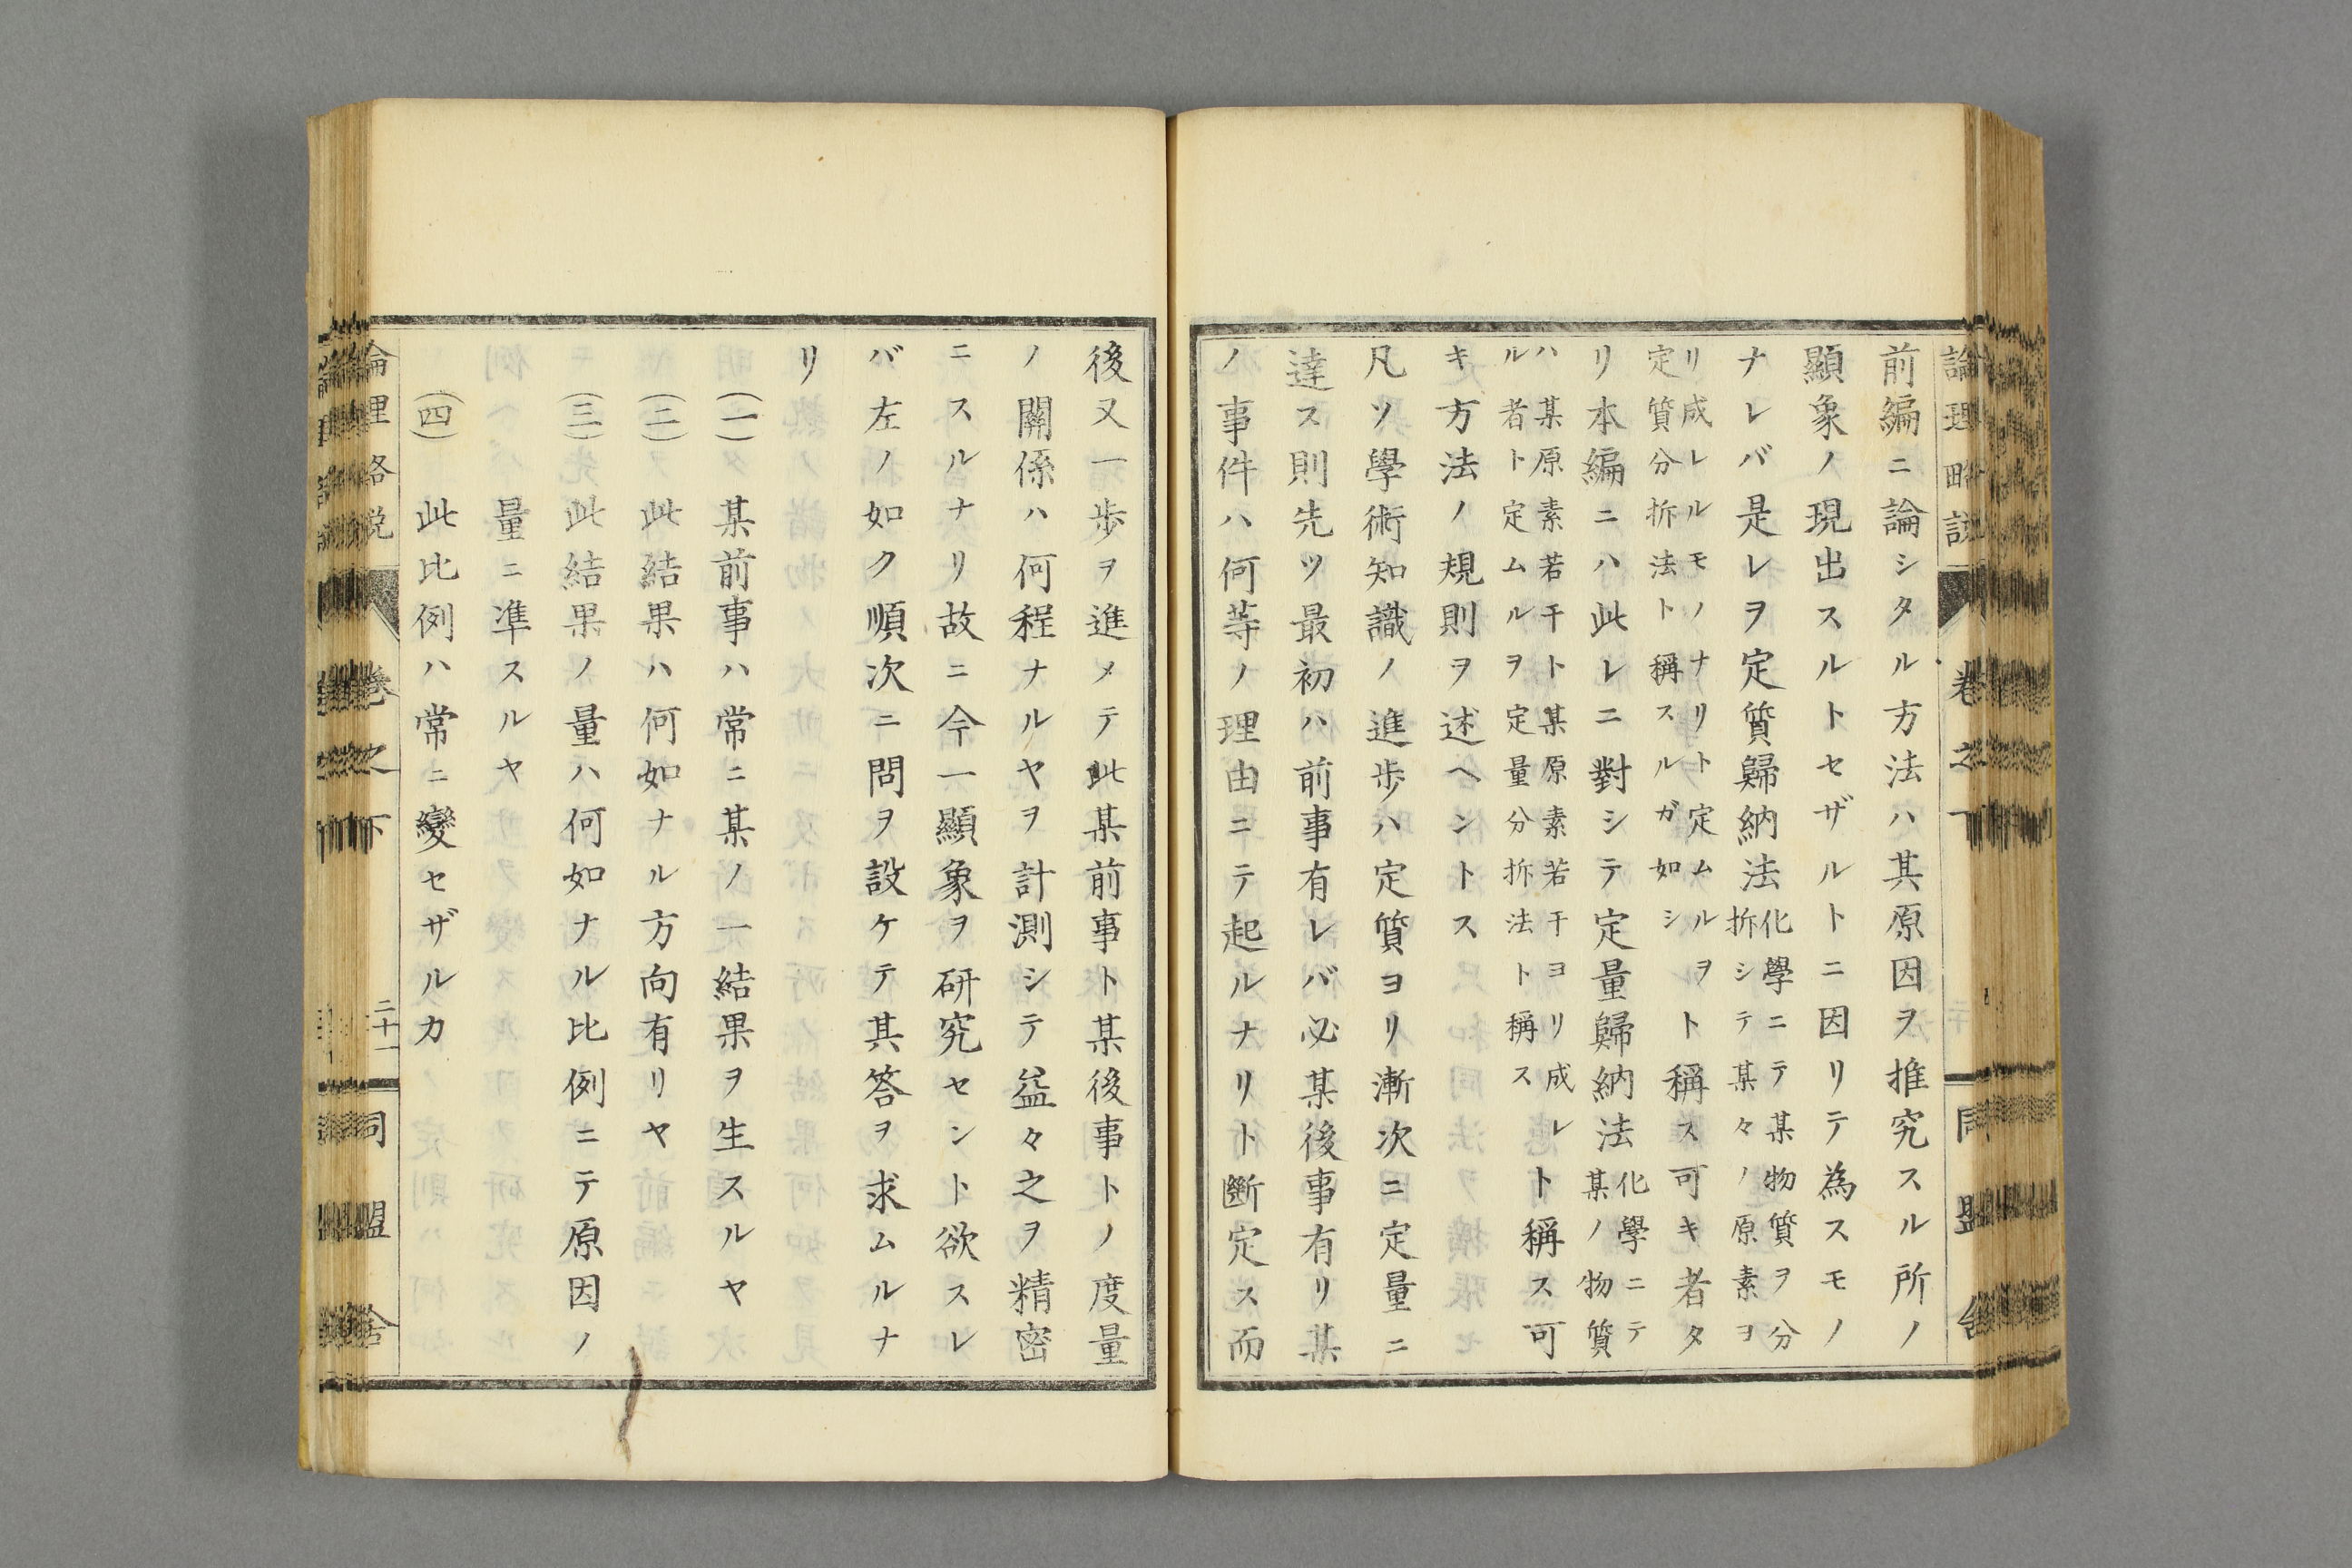 論理略説 卷之下 同盟舍
前編ニ論シタル方法ハ其原因ヲ推究スル所ノ
顯象ノ現出スルトセザルトニ因リテ為スモノ
ナレバ是レヲ定質歸納法化學ニテ某物質ヲ分拆シテ某々ノ原素ヲ
リ成レルモノナリト定ムルヲ定質分拆法ト稱スルガ如シト稱ス可キ者タ
リ本編ニハ此レニ對シテ定量歸納法化學ニテ某ノ物質
ハ某原素若干ト某原素若干ヨリ成レル者ト定ムルヲ定量分拆法ト稱スト稱ス可
キ方法ノ規則ヲ述ヘントス
凡ソ學術知識ノ進歩ハ定質ヨリ漸次ニ定量ニ
達ス則先ツ最初ハ前事有レバ必某後事有リ某
ノ事件ハ何等ノ理由ニテ起ルナリト斷定ス而
後又一歩ヲ進メテ此某前事ト某後事トノ度量
ノ關係ハ何程ナルヤヲ計測シテ益々之ヲ精密
ニスルナリ故ニ今一顯象ヲ研究セント欲スレ
バ左ノ如ク順次ニ問ヲ設ケテ其答ヲ求ムルナ
リ
(一) 某前事ハ常ニ某ノ一結果ヲ生スルヤ
(二) 此結果ハ何如ナル方向有リヤ
(三) 此結果ノ量ハ何如ナル比例ニテ原因ノ
量ニ凖スルヤ
(四) 此比例ハ常ニ變セザルカ
論理略説 卷之下 二十一 同盟舍